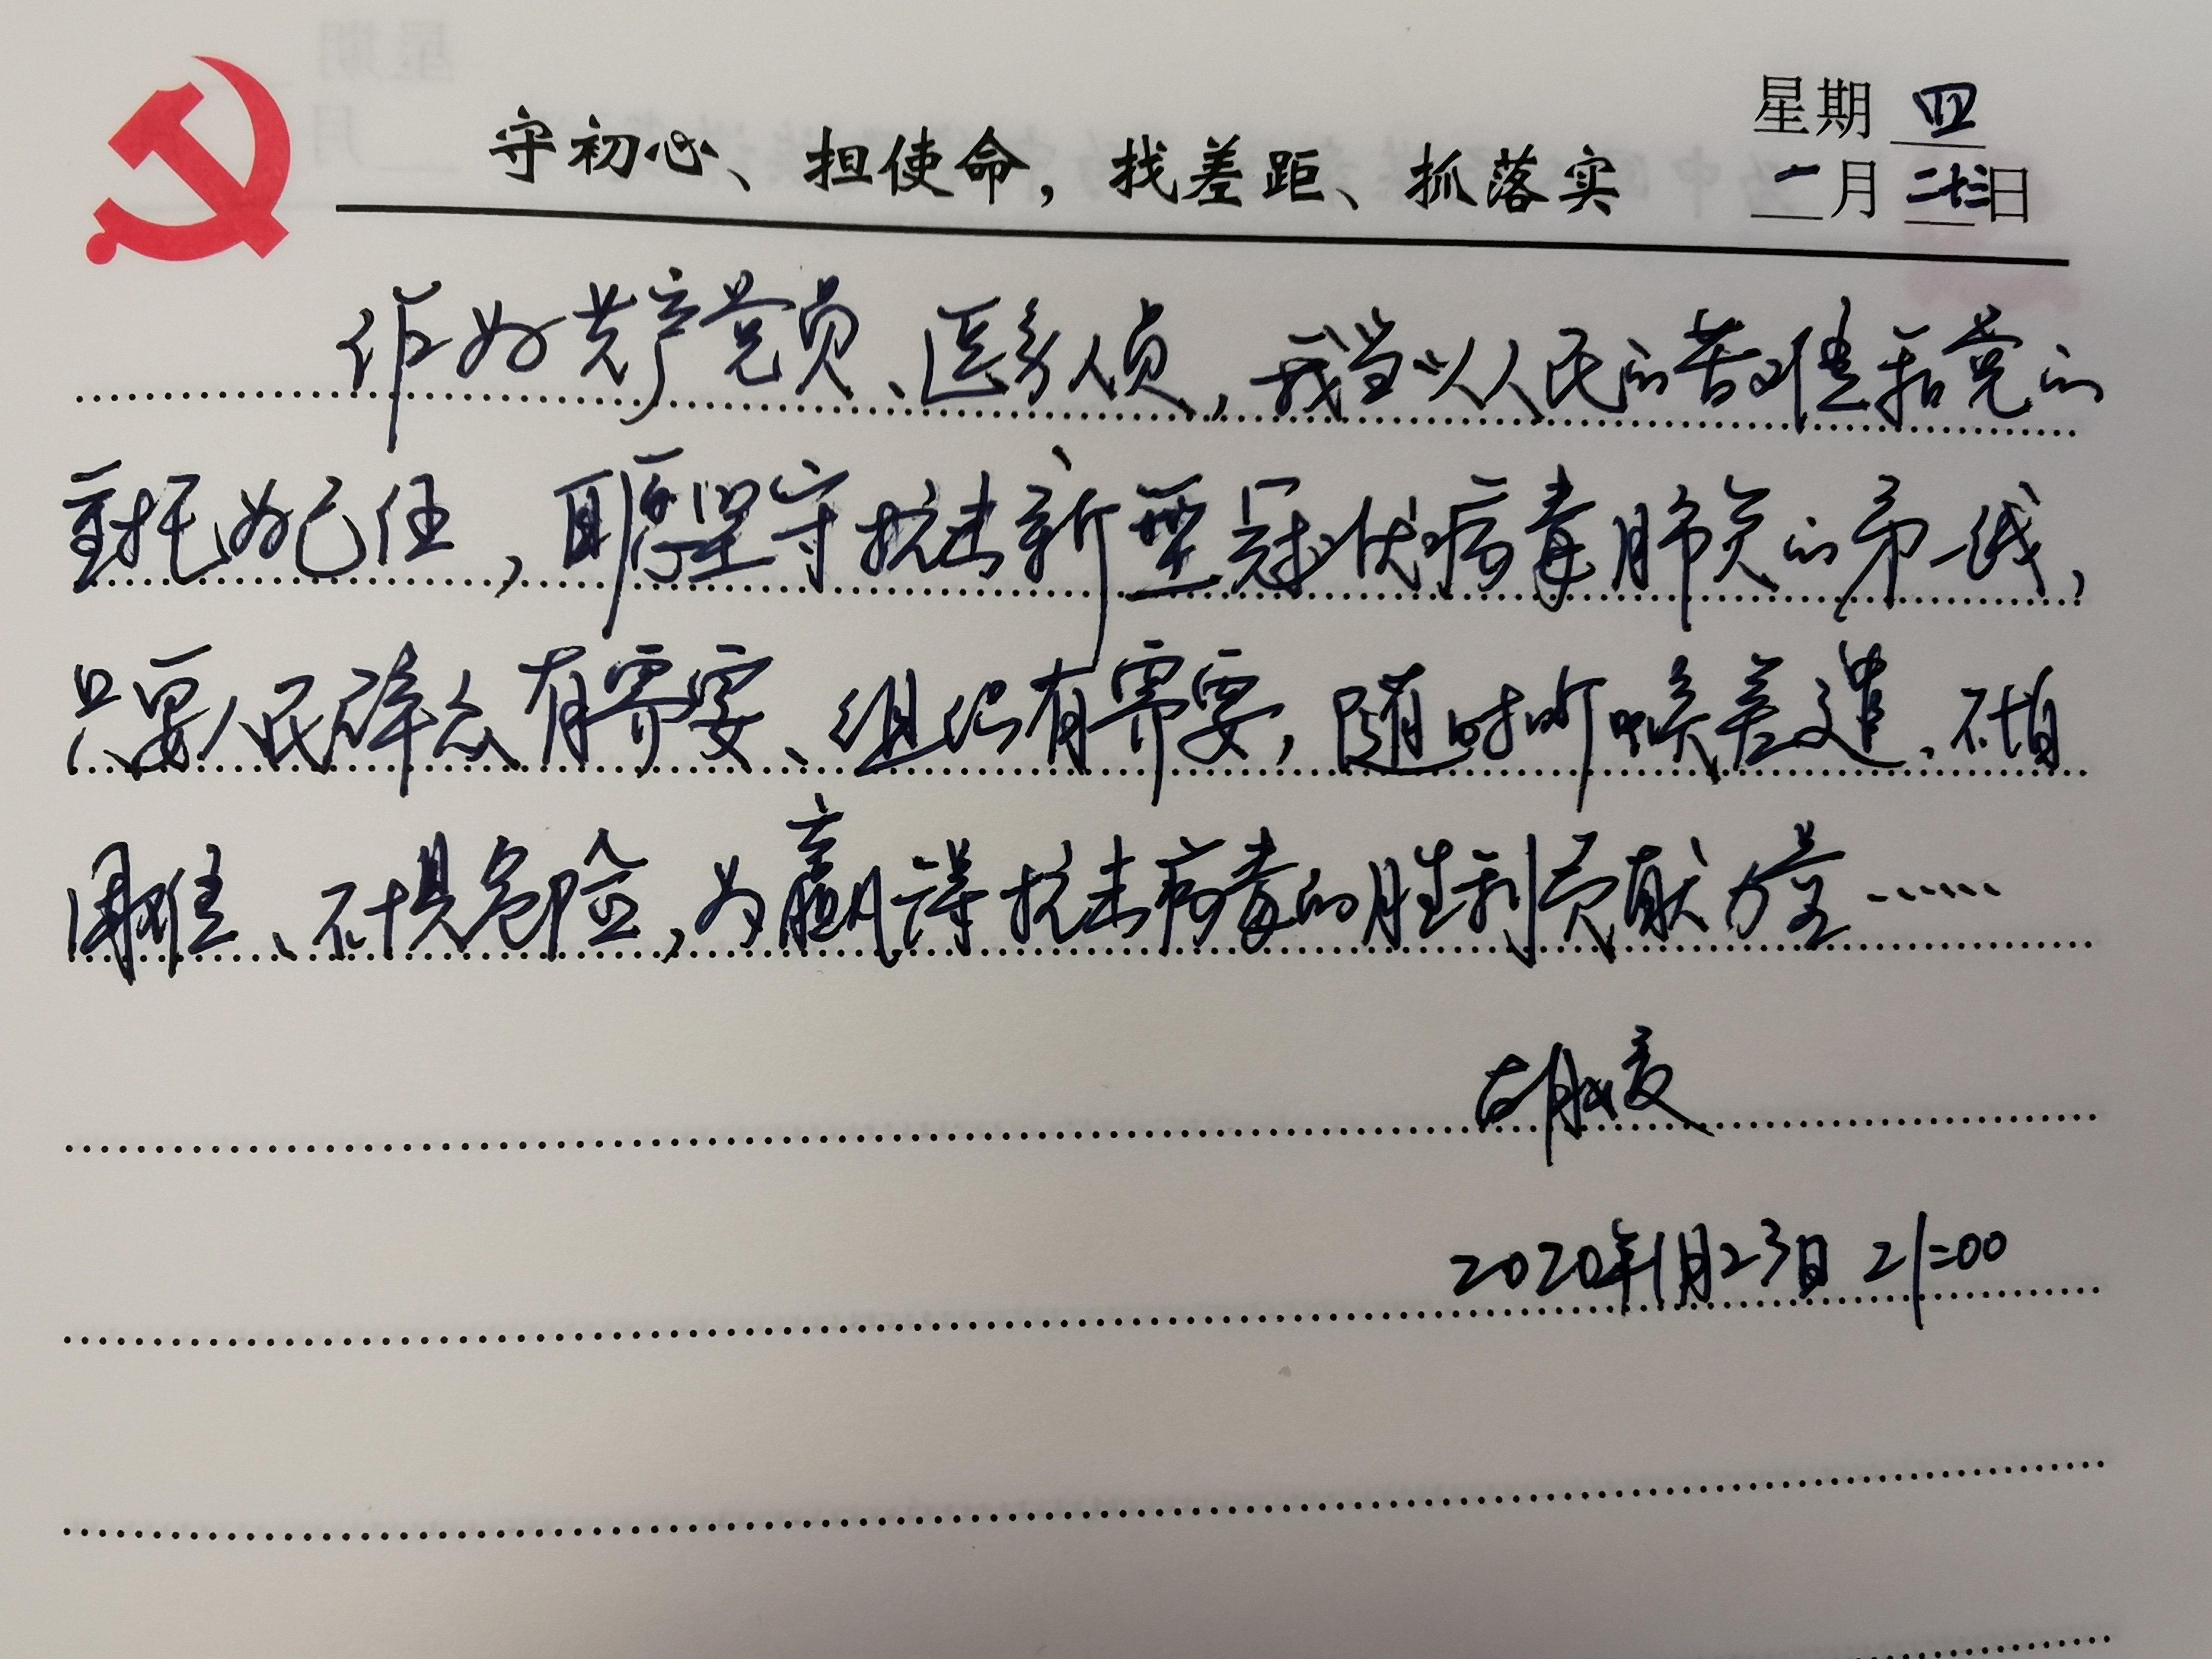 星期 四
守初心、担使命，找差距、抓落实
一月 二十三日
作为共产党员、医务人员，我当以人民的苦难和党的
重托为己任，坚守抗击新型冠状病毒肺炎的第一线，
只要人民群众有需要、组织有需要，随时听候差遣、不怕
困难、不惧危险，为赢得抗击病毒的胜利贡献力量……
胡
2020年1月23日 21:00